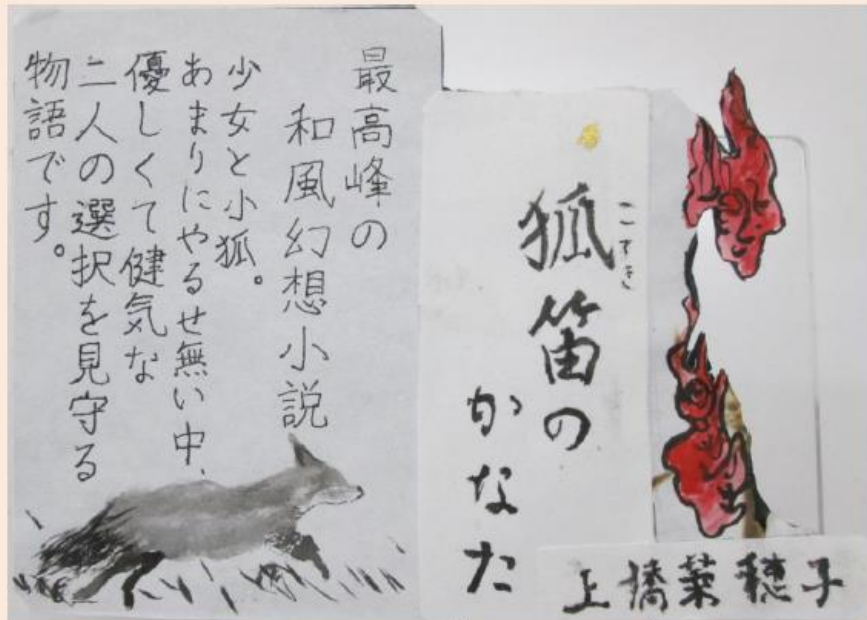 最高峰の
和風幻想小説
少女と小狐。
あまりにやるせ無い中、
優しくて健気な
二人の選択を見守る
物語です。
こてき
狐笛の
かなた
上橋菜穂子